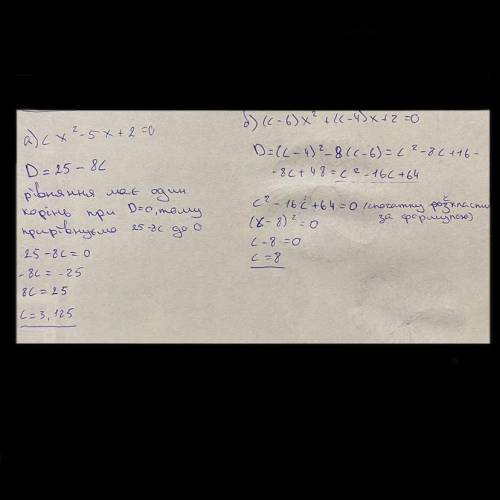 а) cx² - 5x + 2 = 0
D = 25 - 8c
рівняння має один
корінь при D=0, тому
прирівнуємо 25-8c до 0
25 - 8c = 0
-8c = -25
8c = 25
c = 3,125
б) (c-6)x² + (c-4)x + 2 = 0
D = (c-4)² - 8(c-6) = c² - 8c + 16 -
- 8c + 48 = c² - 16c + 64
c² - 16c + 64 = 0 (спочатку розкласти
за формулою)
(c - 8)² = 0
c - 8 = 0
c = 8